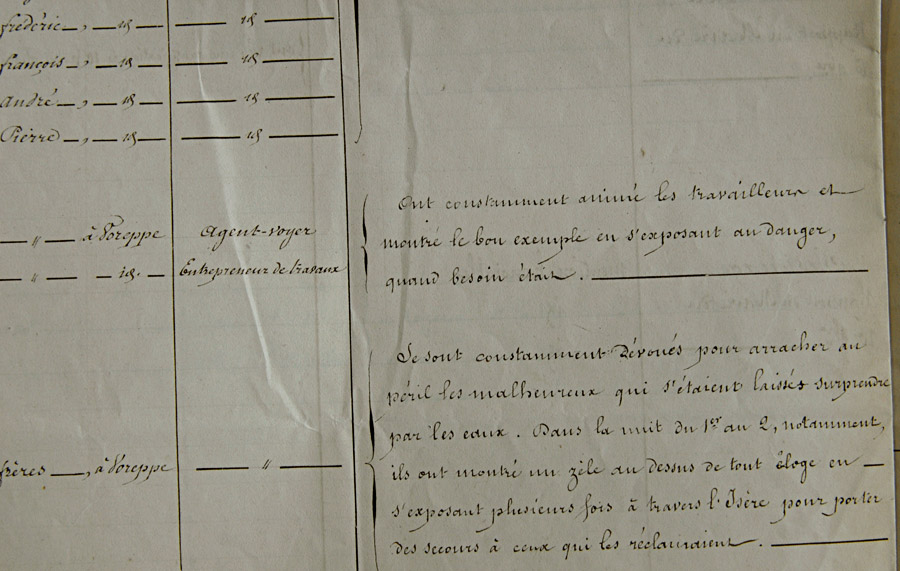 frédéric —, — id — — id —
françois —, — id — — id —
André —, — id — — id —
Pierre —, — id — — id —
Ont constamment animé les travailleurs et —
— " — à Voreppe Agent-voyer montré le bon exemple en s'exposant au danger,
— " — — id. — Entrepreneur de travaux quand besoin était. —
Se sont constamment dévoués pour arracher au
péril les malheureux qui s'étaient laissés surprendre
par les eaux. Dans la nuit du 1er au 2, notamment,
frères —, à Voreppe — " — ils ont montré un zèle au dessus de tout éloge en —
s'exposant plusieurs fois à travers l'Isère pour porter
des secours à ceux qui les réclamaient. —